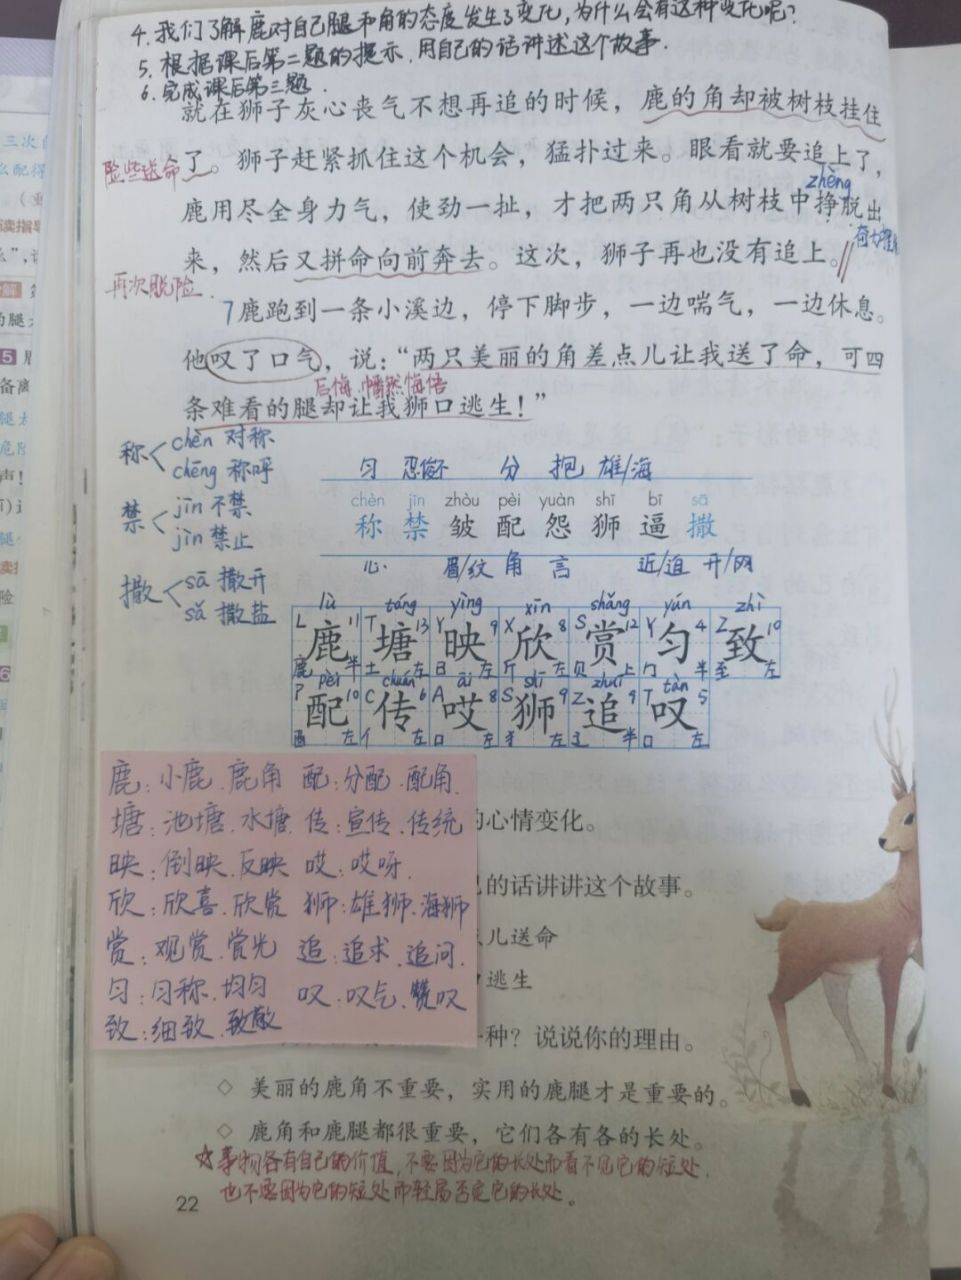 4. 我们了解鹿对自己腿和角的态度发生了变化,为什么会有这种变化呢?
5. 根据课后第二题的提示,用自己的话讲述这个故事.
6. 完成课后第三题.
就在狮子灰心丧气不想再追的时候，鹿的角却被树枝挂住
险些送命
了。狮子赶紧抓住这个机会，猛扑过来。眼看就要追上了，
zhèng
鹿用尽全身力气，使劲一扯，才把两只角从树枝中挣脱出
来，然后又拼命向前奔去。这次，狮子再也没有追上。
再次脱险.
7鹿跑到一条小溪边，停下脚步，一边喘气，一边休息。
他叹了口气，说：“两只美丽的角差点儿让我送了命，可四
后悔.幡然悔悟
条难看的腿却让我狮口逃生！”
称 chèn 对称
chēng 称呼
禁 jīn 不禁
jìn 禁止
撒 sā 撒开
sǎ 撒盐
匀 忍俊不 分 抱 雄/海
chèn jīn zhòu pèi yuàn shī bī sā
称 禁 皱 配 怨 狮 逼 撒
心. 眉/纹 角 言 近/迫 开/网
lù táng yìng xīn shǎng yún zhì
L 11 T 13 Y 9 X 8 S 12 Y 4 Z 10
鹿 塘 映 欣 赏 匀 致
鹿 半 土 左 日 左 斤 左 贝 上 勹 半 至 左
pèi chuán āi shī zhuī tàn
P 10 C 6 A 8 S 9 Z 9 T 5
配 传 哎 狮 追 叹
酉 左 亻 左 口 左 犭 左 辶 半 口 左
鹿：小鹿.鹿角 配：分配.配角.
塘：池塘.水塘 传：宣传.传统
映：倒映.反映 哎：哎呀.
欣：欣喜.欣赏 狮：雄狮.海狮
赏：观赏.赏光 追：追求.追问.
匀：匀称.均匀 叹：叹气.赞叹
致：细致.致敬
的心情变化。
己的话讲讲这个故事。
点儿送命
口逃生
一种？说说你的理由。
◇ 美丽的鹿角不重要，实用的鹿腿才是重要的。
◇ 鹿角和鹿腿都很重要，它们各有各的长处。
☆事物各有自己的价值,不要因为它的长处而看不见它的短处.
也不要因为它的短处而轻易否定它的长处。
22